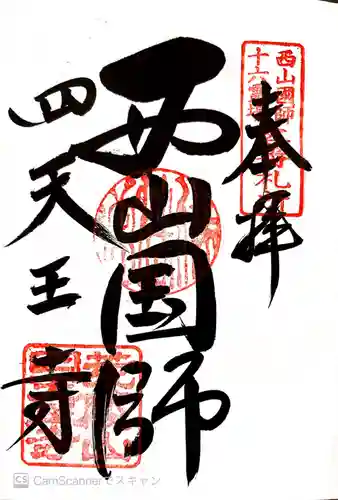 奉拝
西山国師
四天王寺
西山國師
十六霊場
CS CamScannerでスキャン